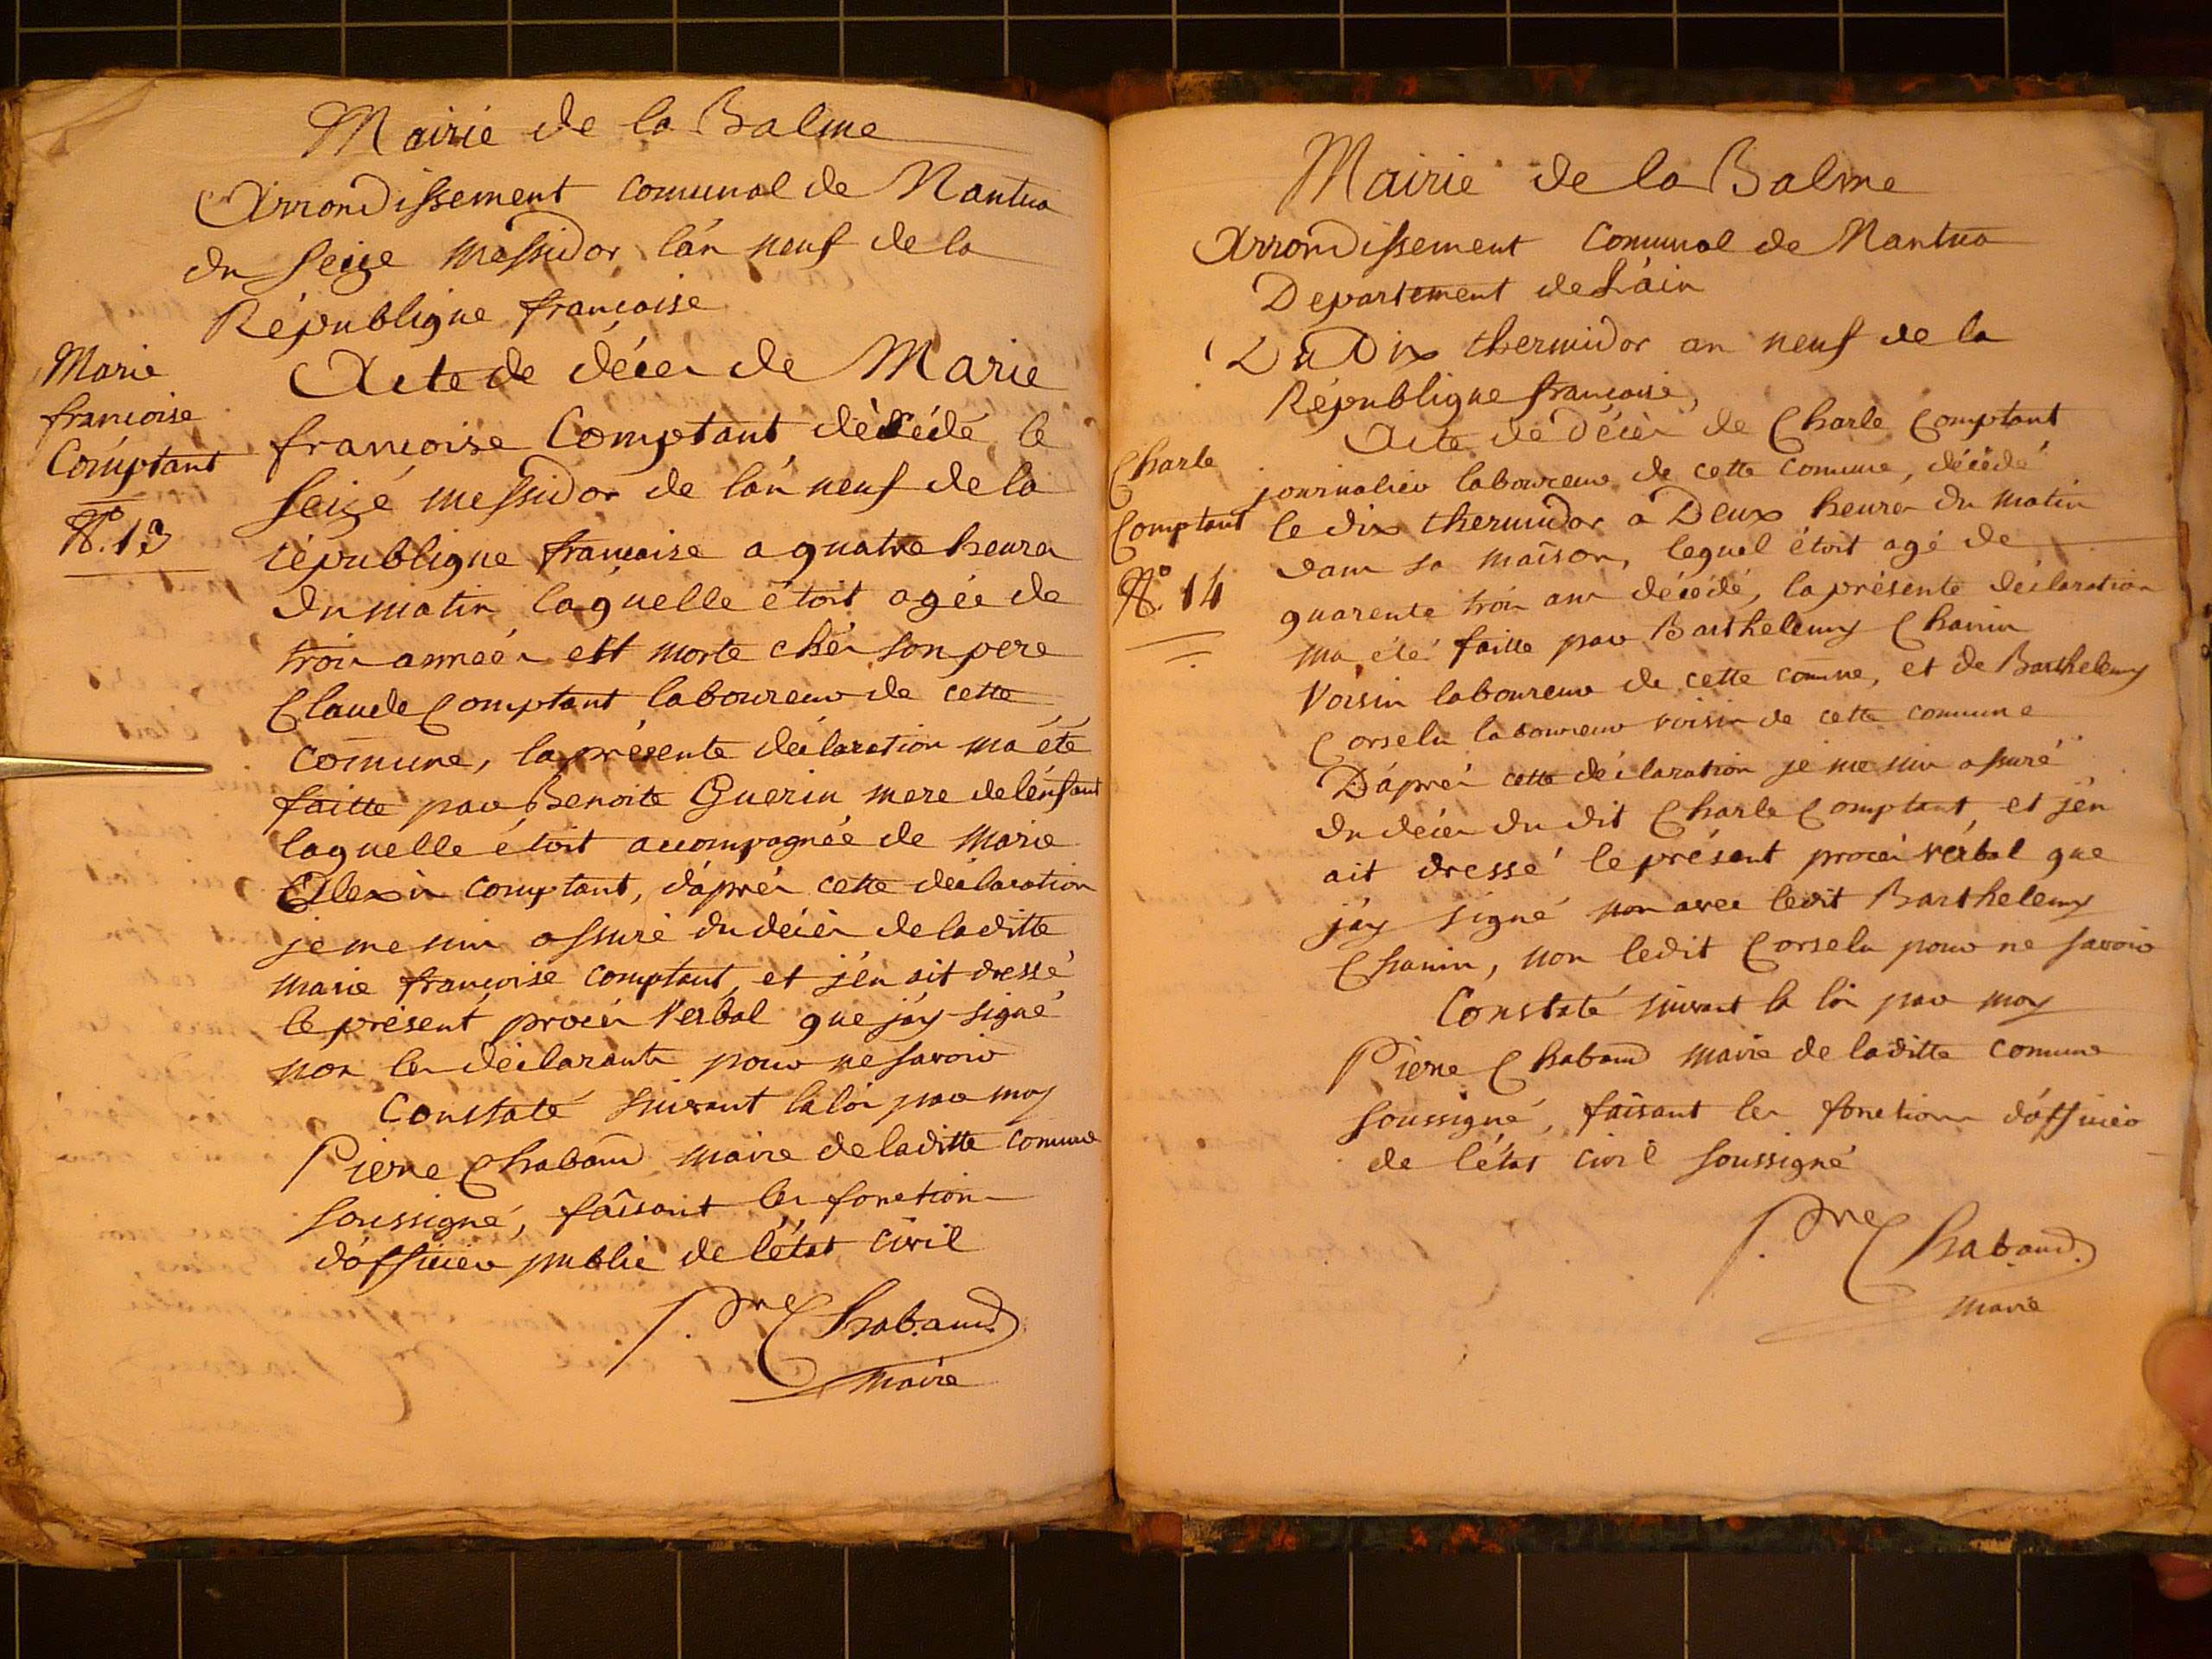 Mairie de la Balme
Arrondissement comunal de Nantua
du seize messidor l'an neuf de la
République françoise
Marie
françoise
Comptant
N.º 13
Acte de décès de Marie
françoise Comptant décédé le
seize messidor de l'an neuf de la
république françoise a quatre heures
du matin, laquelle étoit agée de
trois années est morte chés son pere
Claude Comptant laboureur de cette
comune, la présente déclaration ma été
faitte par Benoite Guerin mere de l'énfant
laquelle étoit accompagnée de Marie
Alexis Comptant, d'aprés cette déclaration
je me suis assuré du décès de laditte
marie françoise comptant, et j'én ait dressé
le présent procés verbal que j'áy signé
non les déclarants pour ne savoir
Constaté suivant la loi par moy
Pierre Chabaud maire de laditte comune
soussigné, faîsant les fonctions
d'officier public de l'état civil
P.re Chabaud.
maire
Mairie de la Balme
Arrondissement Comunal de Nantua
Departement de L'áin
Du Dix thermidor an neuf de la
République françoise,
Charle
Comptant
N.º 14
Acte de décès de Charle Comptant
journalier laboureur de cette comune, décédé
le dix thermidor a Deux heures du matin
dans sa maîson, lequel étoit agé de
quarente trois ans décédé, la présente déclaration
ma été faitte par Barthelemy Chanin
Voisin laboureur de cette comune, et de Barthelemy
Corselu laboureur voisin de cette comune
D'áprés cette déclaration je me suis assuré
du décès du dit Charle Comptant, et j'én
ait dressé le présent procés verbal que
j'áy signé non avec ledit Barthelemy
Chanin, non ledit Corselu pour ne savoir
Constaté suivant la loi par moy
Pierre Chabaud maire de laditte comune
soussigné, faîsant les fonctions d'officier
de l'état civil soussigné
P.re Chabaud.
maire